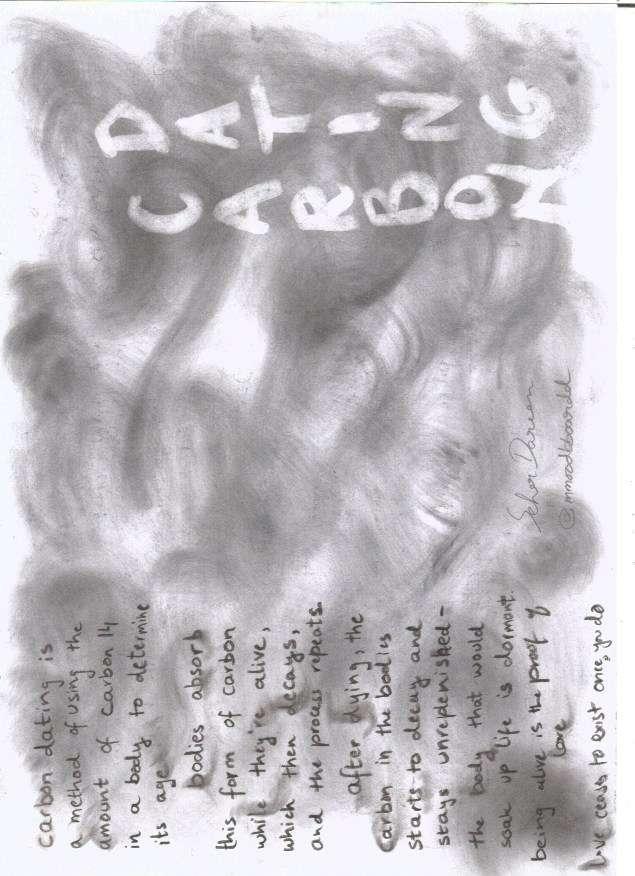 carbon dating is
a method of using the
amount of carbon 14
in a body to determine
its age
bodies absorb
this form of carbon
while they're alive,
which then decays,
and the process repeats.
after dying, the
carbon in the bodies
starts to decay and
stays unreplenished-
the body that would
soak up life is dormant.
being alive is the proof of
love
love ceases to exist once you do
CARBON
DATING
Seher Dareen